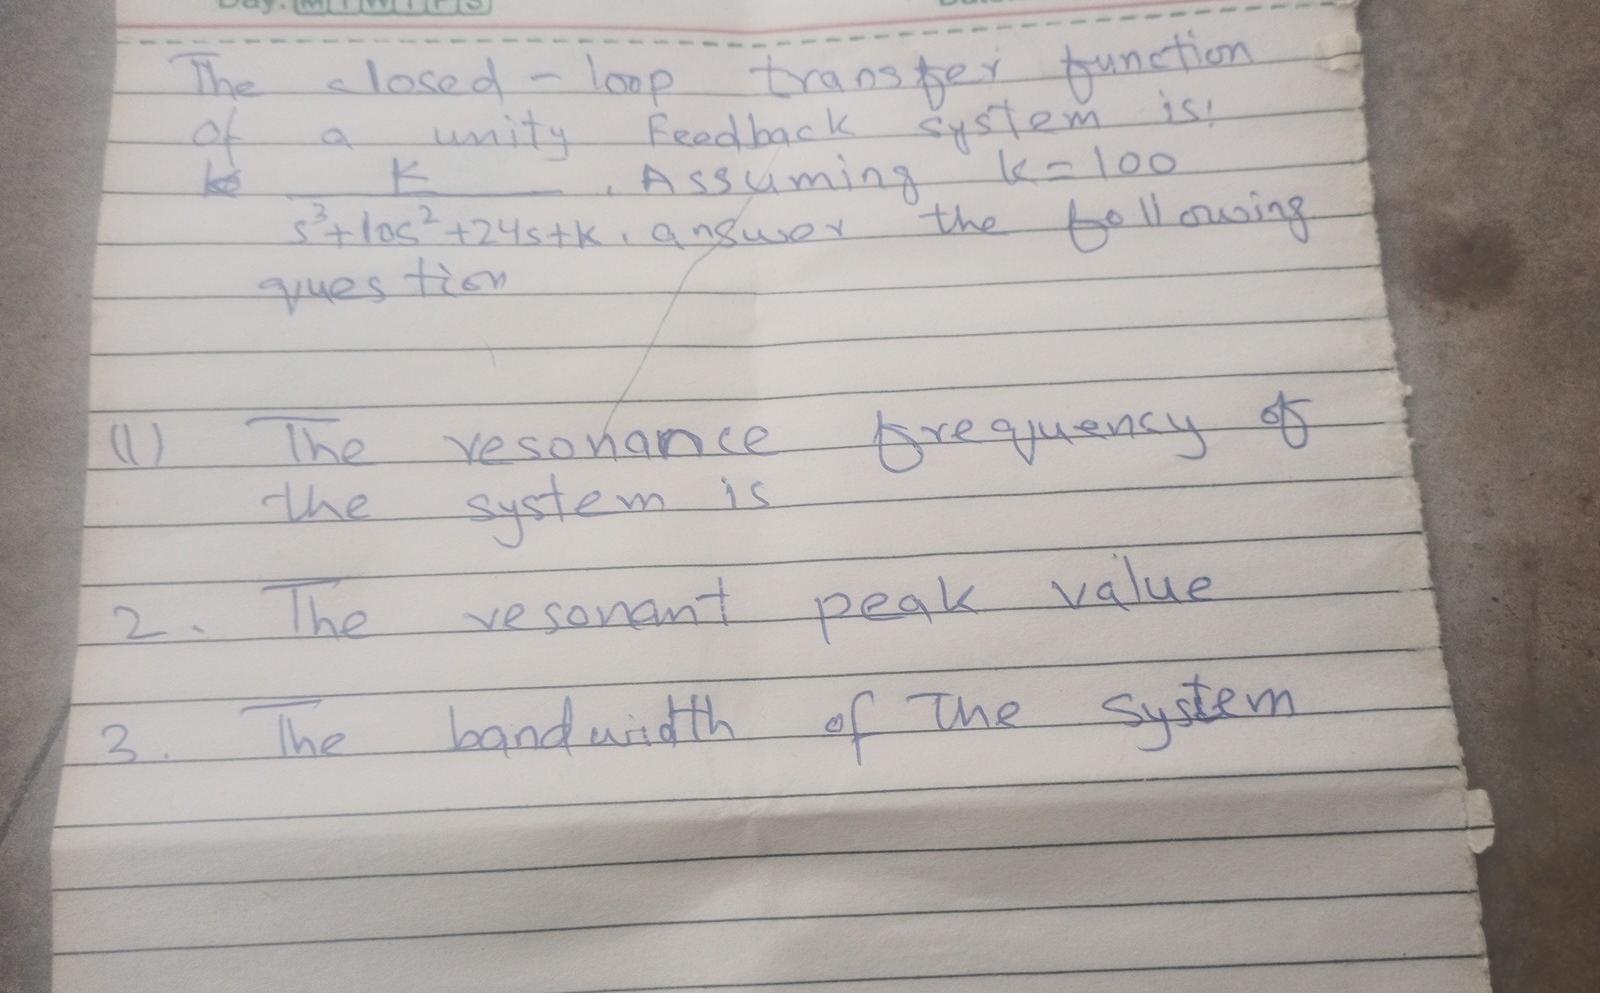 Day: M T W T F S
The closed-loop transfer function
of a unity Feedback system is!
K . Assuming K=100
s³+10s²+24s+K . answer the following
question
(1) The resonance frequency of
the system is
2. The resonant peak value
3. The bandwidth of The system